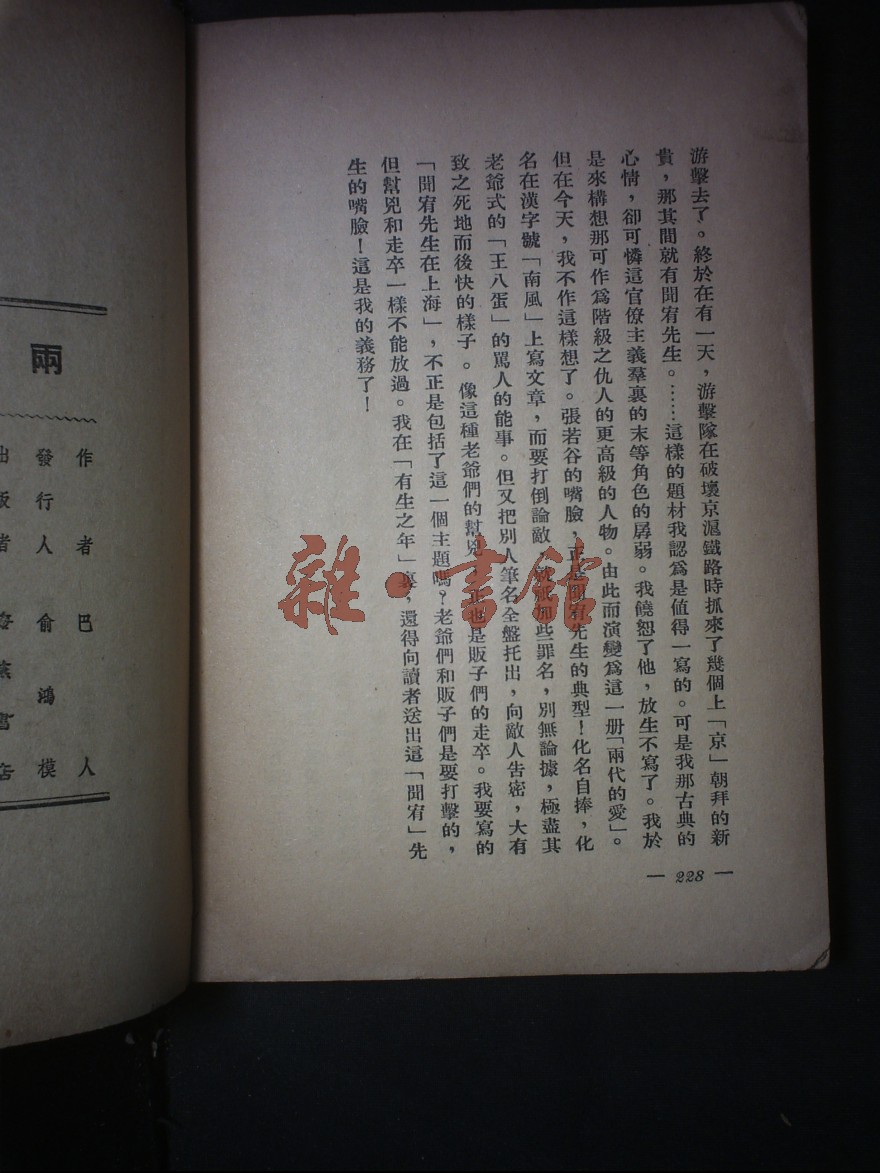 游擊去了。終於在有一天，游擊隊在破壞京滬鐵路時抓來了幾個上「京」朝拜的新
貴，那其間就有聞宥先生。……這樣的題材我認爲是値得一寫的。可是我那古典的
心情，卻可憐這官僚主義羣裏的末等角色的孱弱。我饒恕了他，放生不寫了。我於
是來構想那可作爲階級之仇人的更高級的人物。由此而演變爲這一册「兩代的愛」。
但在今天，我不作這樣想了。張若谷的嘴臉，正是聞宥先生的典型！化名自捧，化
名在漢字號「南風」上寫文章，而要打倒論敵，就說那些罪名，別無論據，極盡其
老爺式的「王八蛋」的罵人的能事。但又把別人筆名全盤托出，向敵人吿密，大有
致之死地而後快的樣子。像這種老爺們的幫兇，正也是販子們的走卒。我要寫的
「聞宥先生在上海」，不正是包括了這一個主題嗎？老爺們和販子們是要打擊的，
但幫兇和走卒一樣不能放過。我在「有生之年」裏，還得向讀者送出這「聞宥」先
生的嘴臉！這是我的義務了！
— 228 —
雜·書館
兩
作者 巴人
發行人 俞鴻模
出版者 書店